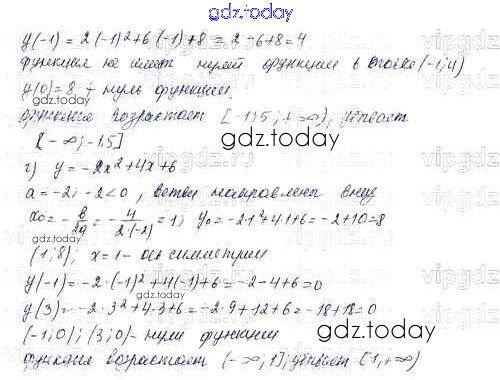 gdz.today
y(-1) = 2(-1)²+6·(-1)+8 = 2-6+8=4
функция не имеет нулей функции в точке (-1;4)
y(0)=8 - нуль функции.
функция возрастает [-1,5; +∞), убывает
[-∞; -1,5]
г) y = -2x²+4x+6
a = -2; -2<0, ветви направлены вниз
x₀ = -b/2a = -4/2·(-2) = 1; y₀ = -2·1²+4·1+6 = -2+10=8
(1;8); x=1 - ось симметрии
y(-1) = -2·(-1)²+4(-1)+6 = -2-4+6=0
y(3) = -2·3²+4·3+6 = -2·9+12+6 = -18+18=0
(-1;0); (3;0) - нули функции
функция возрастает (-∞; 1]; убывает [1; +∞)
gdz.today